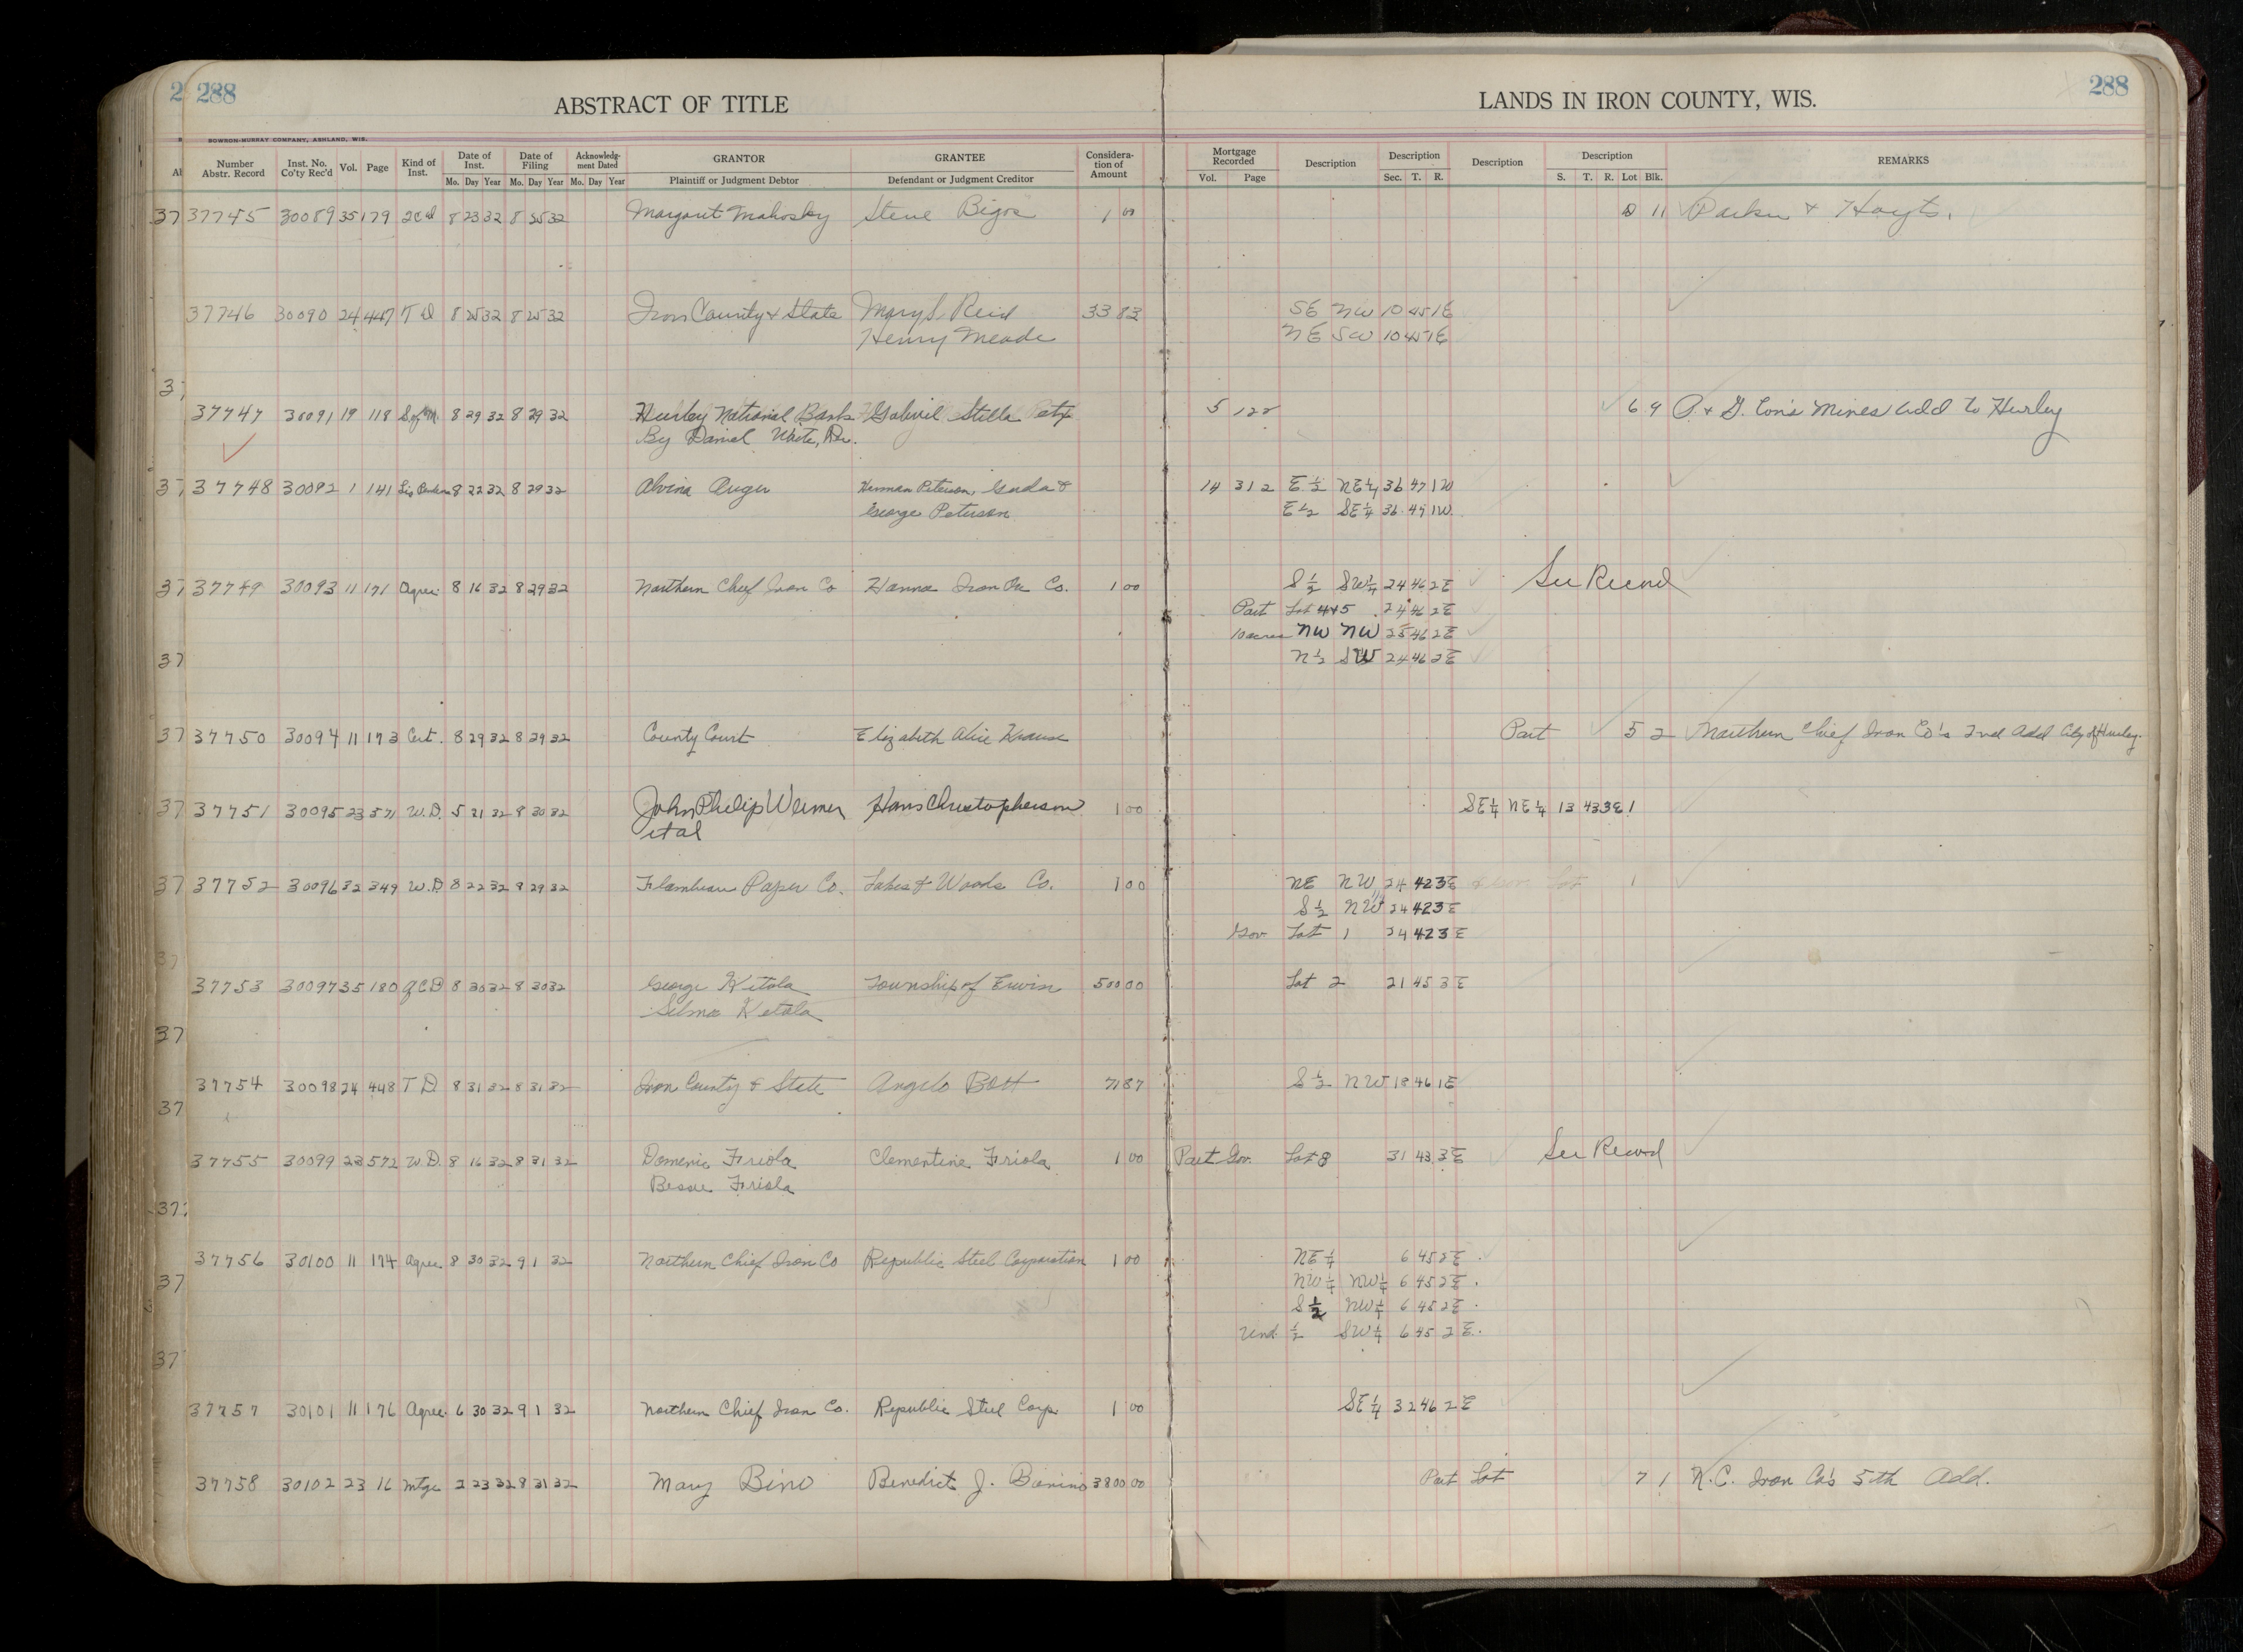 288
ABSTRACT OF TITLE
LANDS IN IRON COUNTY, WIS.
288
BOWRON-MURRAY COMPANY, ASHLAND, WIS.
Number Abstr. Record | Inst. No. Co'ty Rec'd | Vol. | Page | Kind of Inst. | Date of Inst. Mo. Day Year | Date of Filing Mo. Day Year | Acknowledg-ment Dated Mo. Day Year | GRANTOR Plaintiff or Judgment Debtor | GRANTEE Defendant or Judgment Creditor | Considera-tion of Amount | Mortgage Recorded Vol. Page | Description | Description Sec. T. R. | Description | Description S. T. R. Lot Blk. | REMARKS
37745 30089 35 179 2cd 8 23 32 8 25 32 Margaret Mahosky Steve Bigos 1 00 11 Parker & Hoyts.
37746 30090 24 447 T D 8 25 32 8 25 32 Iron County & State Mary S. Reid 33 83 SE NW 10 45 1E
Henry Meade NE SW 10 45 1E
37747 30091 19 118 S of M 8 29 32 8 29 32 Hurley National Bank Gabriel Stella 5 122 6 9 P. & G. Con's Mines Add to Hurley
By Daniel White, Re.
37748 30092 1 141 Lis Penden 8 22 32 8 29 32 Alvina Auger Herman Peterson, Gerda & 14 312 E ½ NE¼ 36 47 1W
George Peterson E½ SE¼ 36 47 1W.
37749 30093 11 171 Agree. 8 16 32 8 29 32 Northern Chief Iron Co Hanna Iron Ore Co. 1 00 S ½ SW¼ 24 46 2E See Record
Part Lot 4+5 24 46 2E
10 acres NW NW 25 46 2E
N ½ SW 24 46 2E
37750 30094 11 173 Cert. 8 29 32 8 29 32 County Court Elizabeth Alice Krause Part 5 2 Northern Chief Iron Co's 2nd Add City of Hurley.
37751 30095 23 571 W.D. 5 21 32 8 30 32 John Philip Weimer Hans Christopherson 1 00 SE¼ NE¼ 13 43 3E 1
et al
37752 30096 32 349 W.D 8 22 32 8 29 32 Flambeau Paper Co. Lakes & Woods Co. 1 00 NE NW 24 42 3E Lot 1
S ½ NW 24 42 3E
Gov Lot 1 24 42 3E
37753 30097 35 180 Q C D 8 30 32 8 30 32 George Ketola Township of Erwin 500 00 Lot 2 21 45 3E
Selma Ketola
37754 30098 24 448 T D 8 31 32 8 31 32 Iron County & State Angelo Bott 71 87 S ½ NW 18 46 1E
37755 30099 23 572 W.D. 8 16 32 8 31 32 Domenic Friola Clementine Friola 1 00 Part Gov. Lot 8 31 43 3E See Record
Bessie Friola
37756 30100 11 174 Agree. 8 30 32 9 1 32 Northern Chief Iron Co Republic Steel Corporation 1 00 NE ¼ 6 45 2E
NW¼ NW¼ 6 45 2E
S ½ NW¼ 6 45 2E
Und. ½ SW¼ 6 45 2E.
37757 30101 11 176 Agree. 6 30 32 9 1 32 Northern Chief Iron Co. Republic Steel Corp. 1 00 SE¼ 32 46 2E
37758 30102 23 16 Mtge 2 23 32 8 31 32 Mary Bino Benedict J. Bonino 3800 00 Part Lot 7 1 N.C. Iron Co's 5th Add.